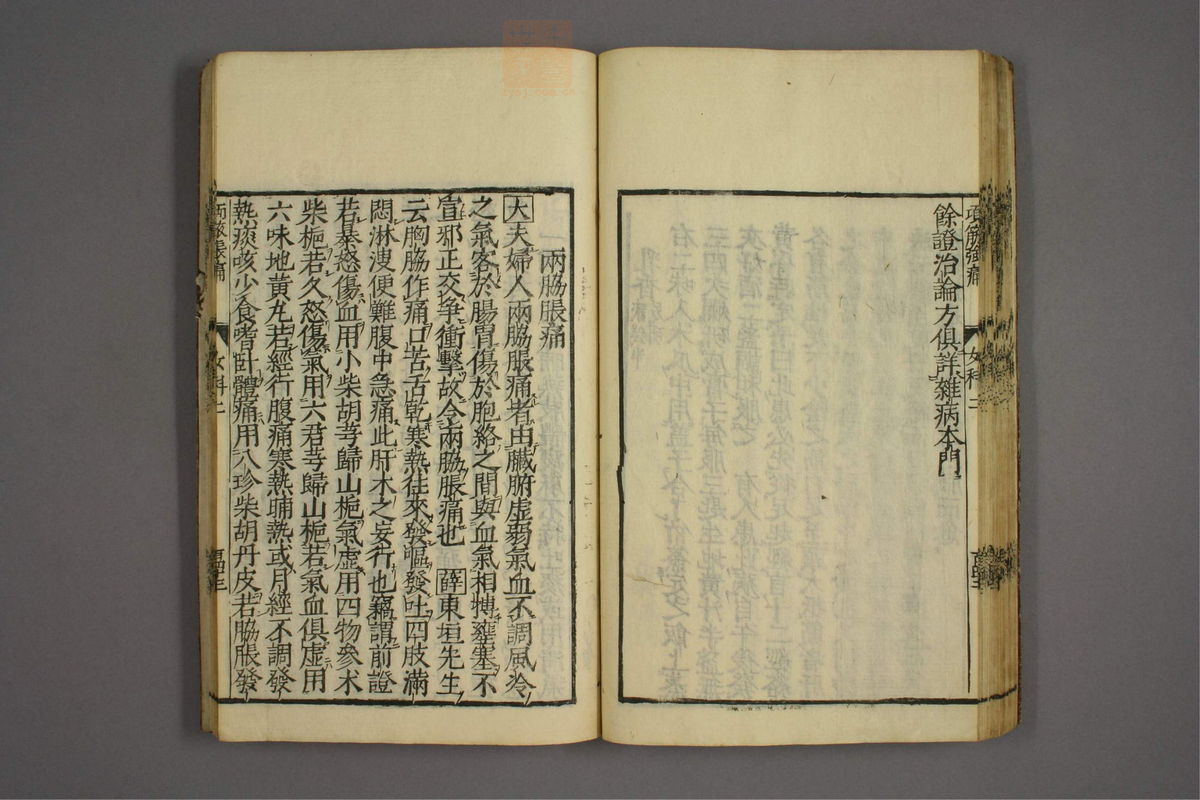 項筋強痛
女科二
餘證治論方俱詳雜病本門
兩脇脹痛
大夫婦人兩脇脹痛者由臟腑虛弱氣血不調風冷
之氣客於腸胃傷於胞絡之間與血氣相搏壅塞不
宣邪正交爭衝擊故令兩脇脹痛也 薛東垣先生
云胸脇作痛口苦舌乾寒熱往來發嘔發吐四肢滿
悶淋溲便難腹中急痛此肝木之妄行也竊謂前證
若暴怒傷血用小柴胡芎歸山梔氣虛用四物參朮
柴梔若久怒傷氣用六君芎歸山梔若氣血俱虛用
六味地黃丸若經行腹痛寒熱晡熱或月經不調發
熱痰咳少食嗜卧體痛用八珍柴胡丹皮若脇脹發
脹痛
女科二